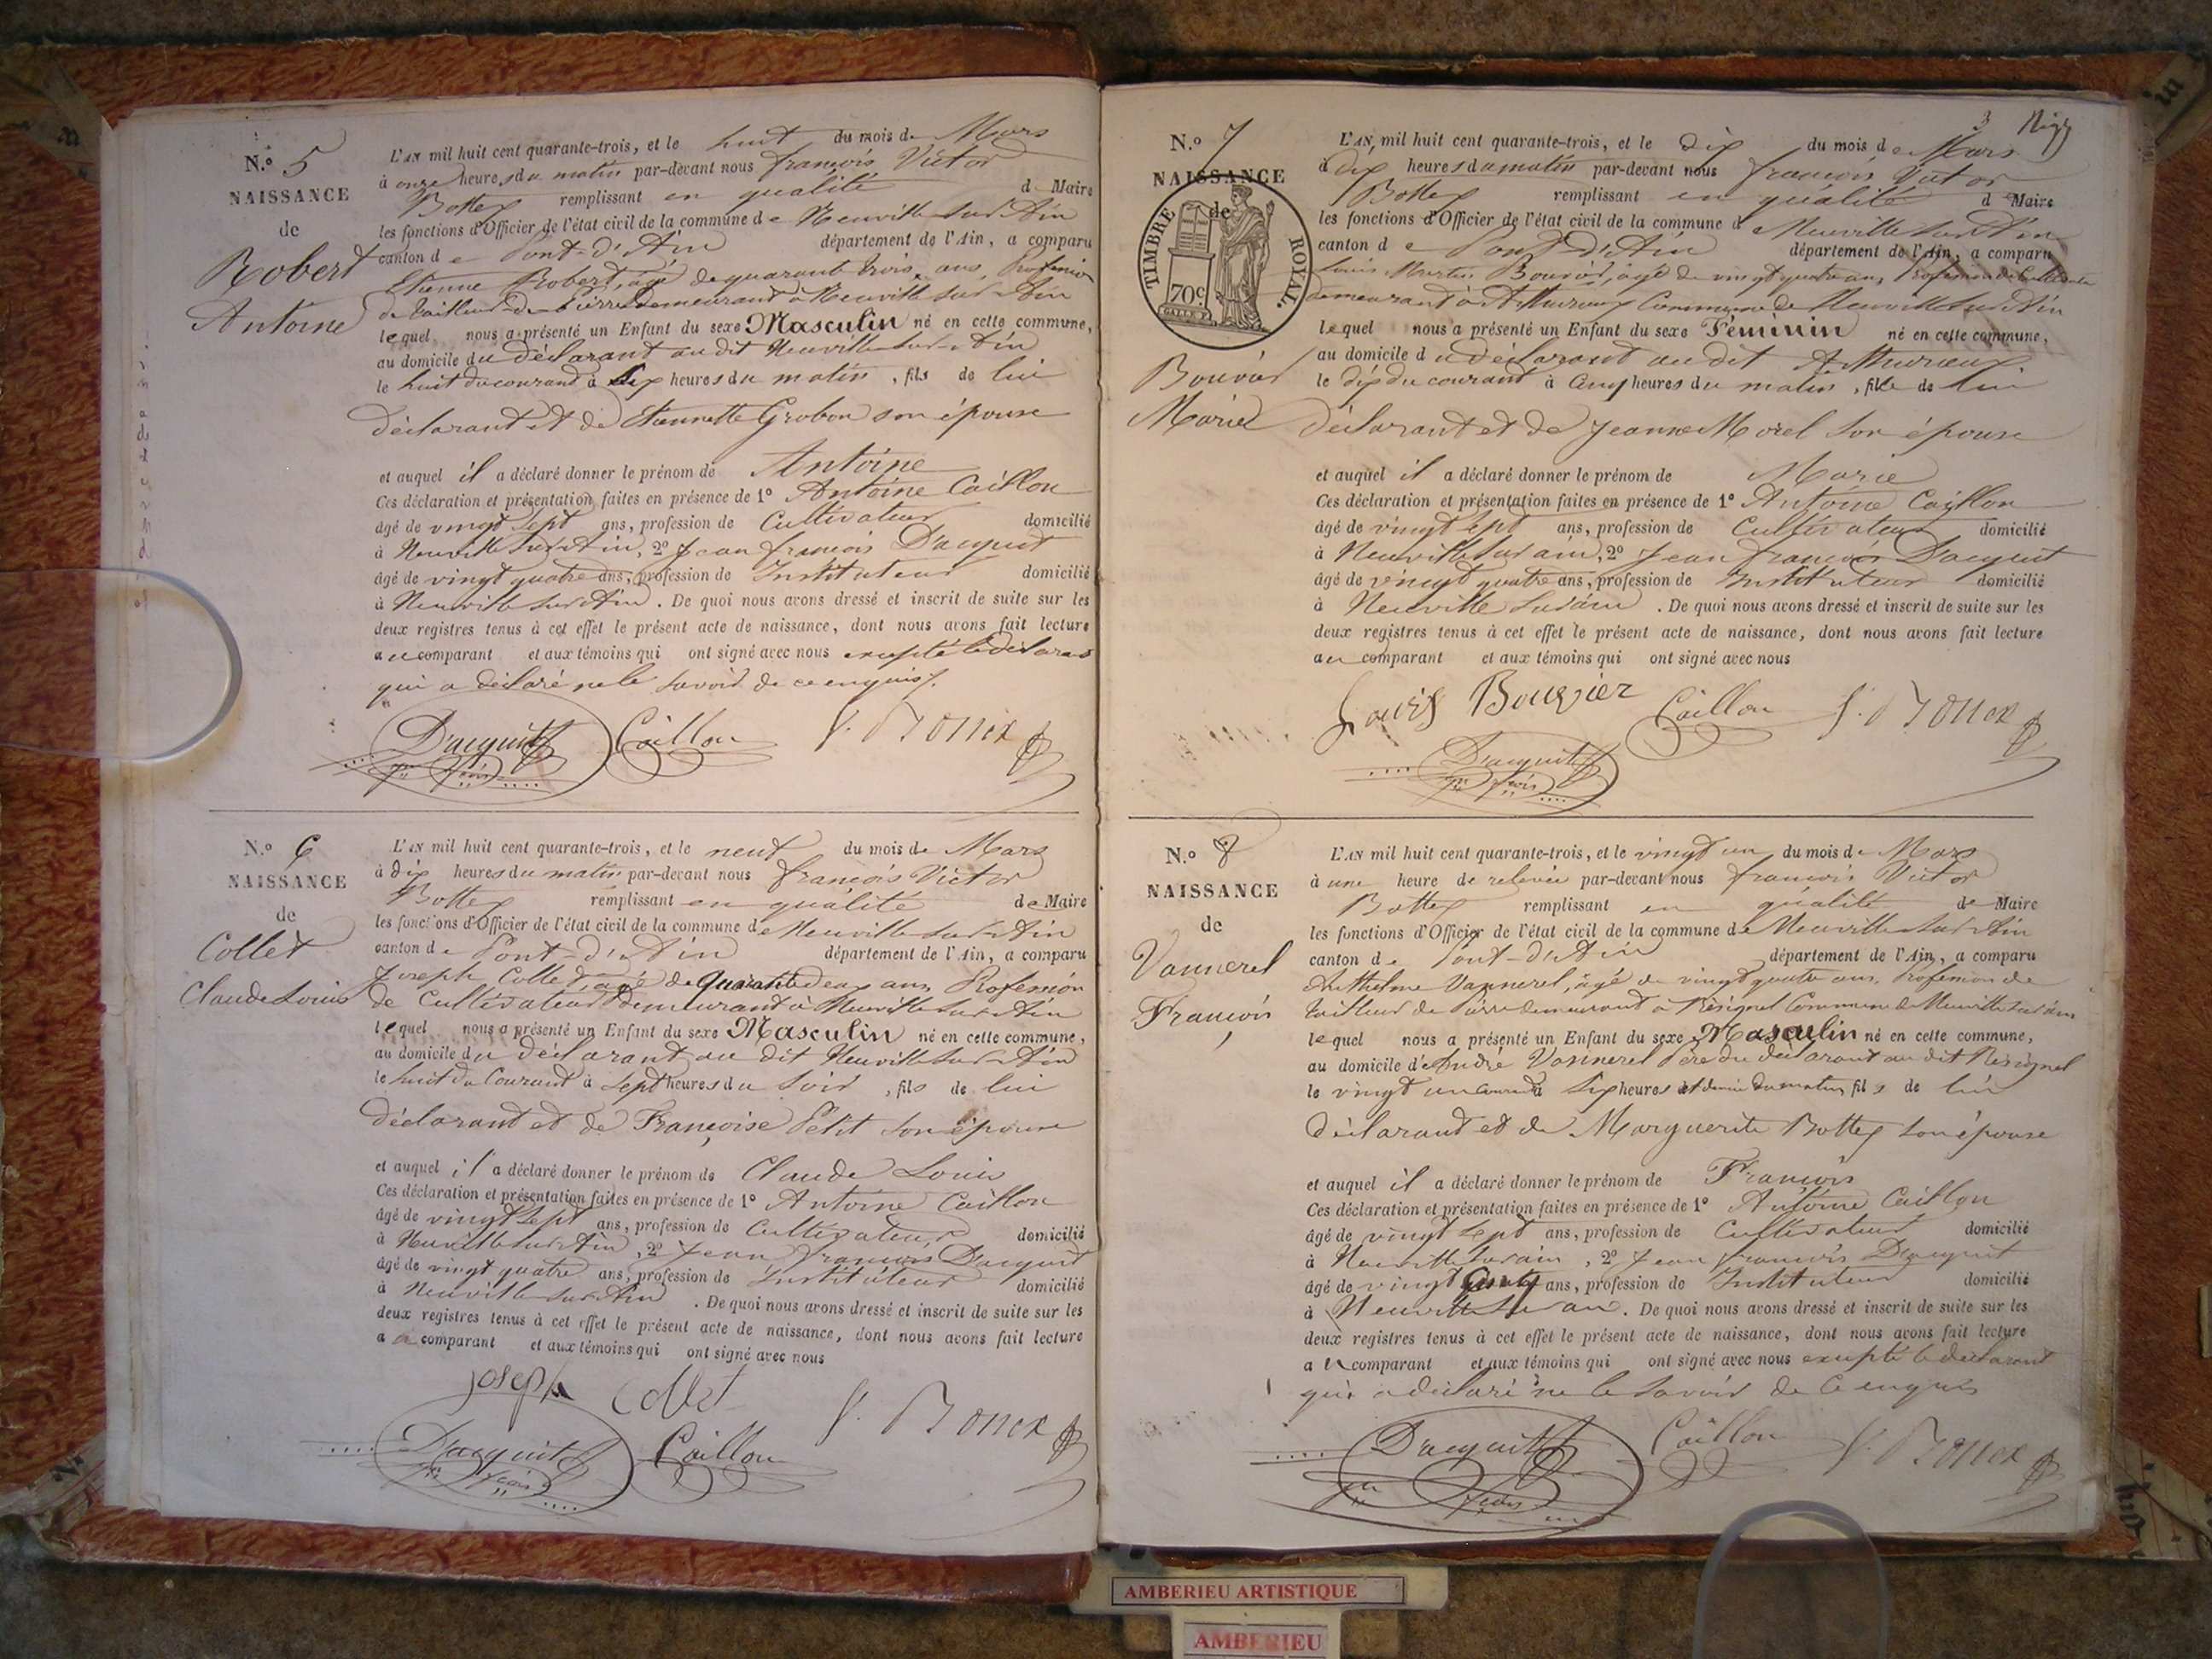 N.º 5
NAISSANCE
de
Robert
Antoine
L'AN mil huit cent quarante-trois, et le huit du mois de Mars
à onze heures du matin par-devant nous françois Victor
Bottex remplissant en qualité de Maire
les fonctions d'Officier de l'état civil de la commune de Neuville sur Ain
canton de Pont-d'Ain département de l'Ain, a comparu
Etienne Robert, âgé de quarante trois ans, Profession
de tailleur de pierre demeurant à Neuville sur Ain
lequel nous a présenté un Enfant du sexe Masculin né en cette commune,
au domicile du déclarant au dit Neuville sur Ain
le huit du courant à heures du matin, fils de lui
déclarant et de Etiennette Grobon son épouse
et auquel il a déclaré donner le prénom de Antoine
Ces déclaration et présentation faites en présence de 1º Antoine Caillon
âgé de vingt sept ans, profession de Cultivateur domicilié
à Neuville sur Ain, 2º Jean françois Dacquit
âgé de vingt quatre ans, profession de Instituteur domicilié
à Neuville sur Ain. De quoi nous avons dressé et inscrit de suite sur les
deux registres tenus à cet effet le présent acte de naissance, dont nous avons fait lecture
au comparant et aux témoins qui ont signé avec nous excepté le déclarant
qui a déclaré ne le savoir de ce enquis.
Dacquit Caillon Bottex
N.º 6
NAISSANCE
de
Collet
Claude Louis
L'AN mil huit cent quarante-trois, et le neuf du mois de Mars
à dix heures du matin par-devant nous françois Victor
Bottex remplissant en qualité de Maire
les fonctions d'Officier de l'état civil de la commune de Neuville sur Ain
canton de Pont-d'Ain département de l'Ain, a comparu
Joseph Collet, âgé de quarante deux ans, Profession
de Cultivateur demeurant à Neuville sur Ain
lequel nous a présenté un Enfant du sexe Masculin né en cette commune,
au domicile du déclarant au dit Neuville sur Ain
le huit du Courant à sept heures du soir, fils de lui
déclarant et de Françoise Petit son épouse
et auquel il a déclaré donner le prénom de Claude Louis
Ces déclaration et présentation faites en présence de 1º Antoine Caillon
âgé de vingt sept ans, profession de Cultivateur domicilié
à Neuville sur Ain, 2º Jean françois Dacquit
âgé de vingt quatre ans, profession de Instituteur domicilié
à Neuville sur Ain. De quoi nous avons dressé et inscrit de suite sur les
deux registres tenus à cet effet le présent acte de naissance, dont nous avons fait lecture
au comparant et aux témoins qui ont signé avec nous
Joseph Collet Bottex
Dacquit Caillon
3
N.º 7
NAISSANCE
de
TIMBRE ROYAL.
70c
Bouvier
Marie
L'AN mil huit cent quarante-trois, et le dix du mois de Mars
à dix heures du matin par-devant nous françois Victor
Bottex remplissant en qualité de Maire
les fonctions d'Officier de l'état civil de la commune de Neuville sur Ain
canton de Pont-d'Ain département de l'Ain, a comparu
Louis Bouvier, âgé de vingt quatre ans, Profession de Cultivateur
demeurant à Commune de Neuville sur Ain
lequel nous a présenté un Enfant du sexe Féminin né en cette commune,
au domicile du déclarant au dit
le dix du courant à cinq heures du matin, fille de lui
déclarant et de Jeanne Morel son épouse
et auquel il a déclaré donner le prénom de Marie
Ces déclaration et présentation faites en présence de 1º Antoine Caillon
âgé de vingt sept ans, profession de Cultivateur domicilié
à Neuville sur ain, 2º Jean françois Dacquit
âgé de vingt quatre ans, profession de Instituteur domicilié
à Neuville sur ain. De quoi nous avons dressé et inscrit de suite sur les
deux registres tenus à cet effet le présent acte de naissance, dont nous avons fait lecture
au comparant et aux témoins qui ont signé avec nous
Louis Bouvier Caillon Bottex
Dacquit
N.º 8
NAISSANCE
de
Vannerel
François
L'AN mil huit cent quarante-trois, et le vingt un du mois de Mars
à une heure de relevée par-devant nous françois Victor
Bottex remplissant en qualité de Maire
les fonctions d'Officier de l'état civil de la commune de Neuville sur Ain
canton de Pont-d'Ain département de l'Ain, a comparu
Anthelme Vannerel, âgé de vingt quatre ans, Profession de
tailleur de Pierre demeurant à Résignel Commune de Neuville sur ain
lequel nous a présenté un Enfant du sexe Masculin né en cette commune,
au domicile d'André Vannerel Père du déclarant au dit Résignel
le vingt un courant à six heures et demie du matin, fils de lui
déclarant et de Marguerite Bottex son épouse
et auquel il a déclaré donner le prénom de François
Ces déclaration et présentation faites en présence de 1º Antoine Caillon
âgé de vingt sept ans, profession de Cultivateur domicilié
à Neuville sur ain, 2º Jean françois Dacquit
âgé de vingt ans, profession de Instituteur domicilié
à Neuville sur ain. De quoi nous avons dressé et inscrit de suite sur les
deux registres tenus à cet effet le présent acte de naissance, dont nous avons fait lecture
au comparant et aux témoins qui ont signé avec nous excepté le déclarant
qui a déclaré ne le savoir de ce enquis
Dacquit Caillon Bottex
AMBERIEU ARTISTIQUE
AMBERIEU